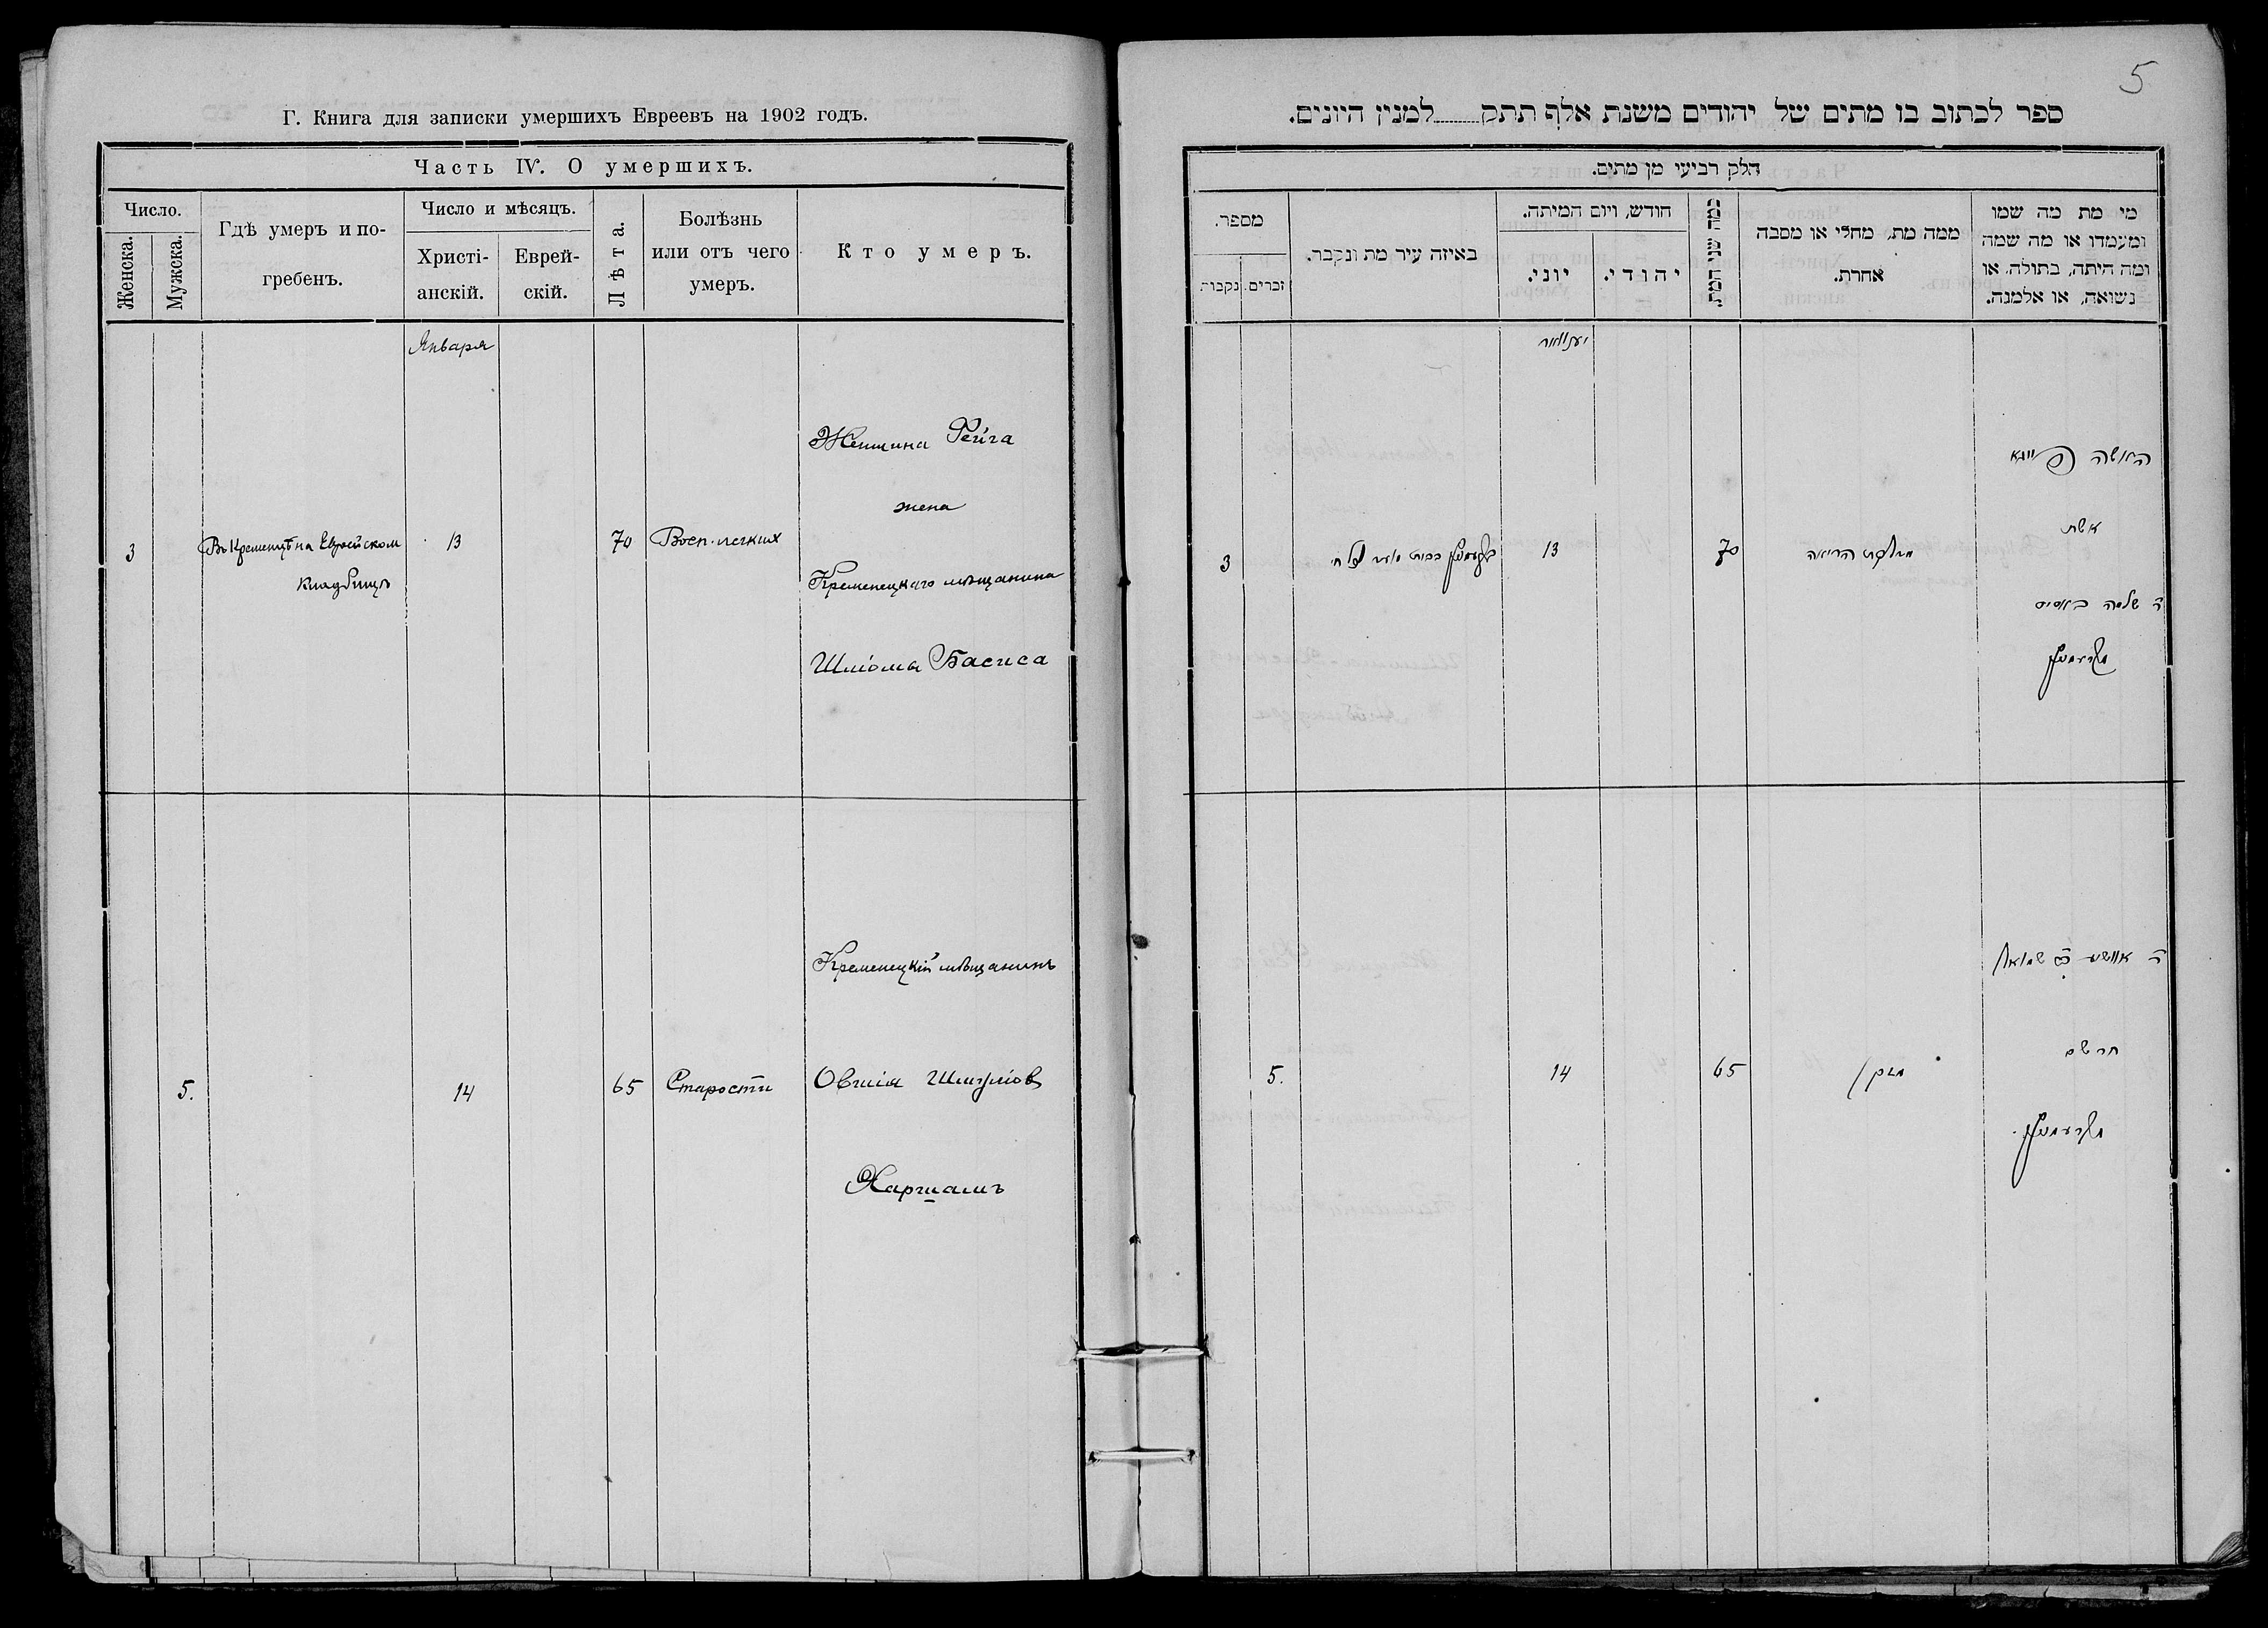 Г. Книга для записки умершихъ Евреевъ на 1902 годъ.
Часть IV. О умершихъ.
Число.
Женска.
Мужска.
Гдѣ умеръ и по-
гребенъ.
Число и мѣсяцъ.
Христі-
анскій.
Еврей-
скій.
Лѣта.
Болѣзнь
или отъ чего
умеръ.
Кто умеръ.
Января
3
Въ Кременцѣ на Еврейском
кладбищѣ
13
70
Восп. легких
Женщина Фейга
жена
Кременецкаго мѣщанина
Шліомы Басиса
5.
14
65
Старости
Кременецкій мѣщанинъ
Овшія Шмулiов
Харшамъ
5
ספר לכתוב בו מתים של יהודים משנת אלף תתק למנין היונים.
חלק רביעי מן מתים.
מספר.
נקבות
זכרים.
באיזה עיר מת ונקבר.
חודש, ויום המיתה.
יוני.
יהודי.
כמה שני המת.
ממה מת, מחלי או מסבה
אחרת.
מי מת מה שמו
ומעמדו או מה שמה
ומה היתה, בתולה, או
נשואה, או אלמנה.
יענואר
3
13
70
מדלקת הריאה
האשה פייגא
אשת
ר שלמה באסיס
מקרעמניץ
5.
14
65
מזקן
ר אושע בר שמואל
חרשם
מקרעמניץ